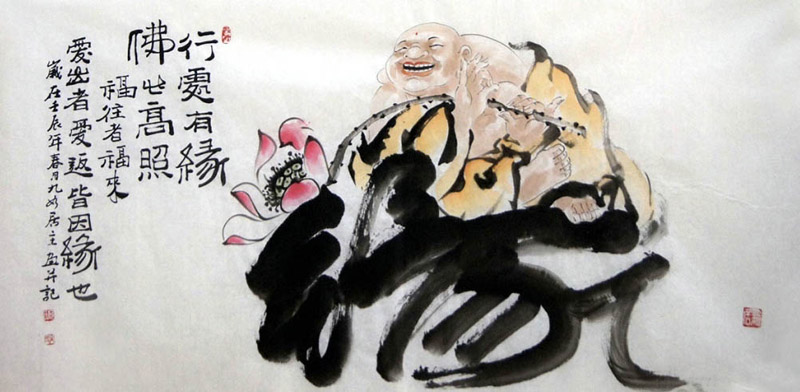 行處有緣
佛光高照
福往者福來
愛出者愛返皆因緣也
歲在壬辰年春月九居主畫并記